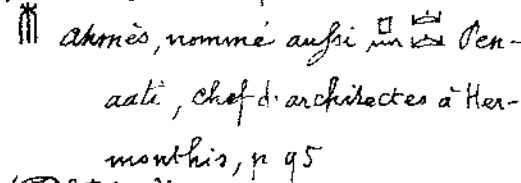 ahmès, nommé aussi Pen-
aati, chef d'architectes à Her-
monthis, p 95